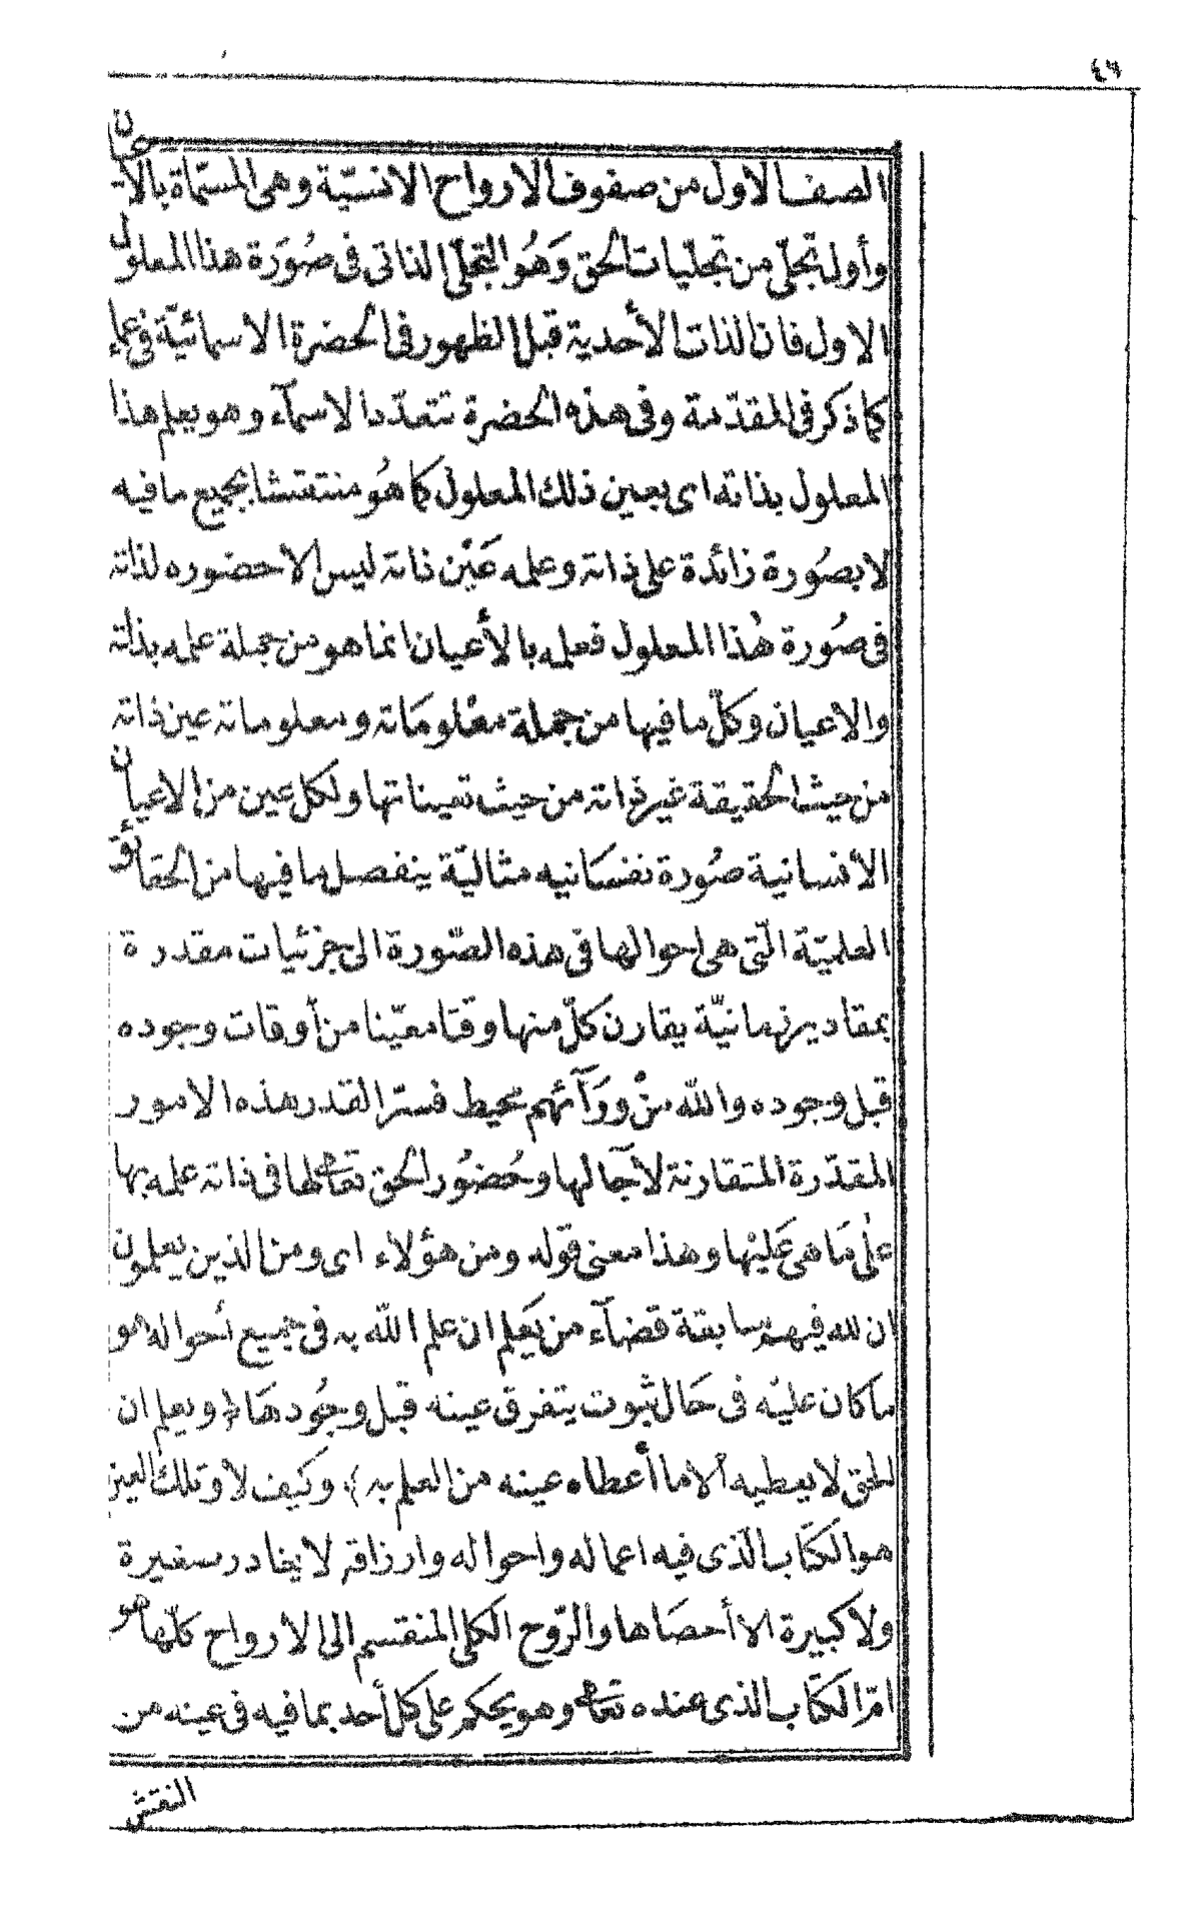 ٤٦
الصف الاول من صفوف الارواح الانسيّة وهى المسمّاة بالاعيان
وأول تجلّى من تجلّيات الحق وَهُو التجلّى الذاتى فى صُورَة هذا المعلول
الاول فان الذات الأحدية قبل الظهور فى الحضرة الاسمائيّة فى عماء
كما ذكر فى المقدّمة وفى هذه الحضرة تتعدّد الاسمآء وهو يعلم هذا
المعلول بذاته اى بعين ذلك المعلول كما هُو منتقشا بجميع ما فيه
لا بصُورة زائدة على ذاته وعلمه عَيْن ذاته ليس الا حضوره لذاته
فى صُورة هٰذا المعلول فعلمه بالأعيان انما هو من جملة علمه بذاته
والاعيان وكلّ ما فيها من جملة معْلومَاته ومعلوماته عين ذاته
من حيث الحقيقة غير ذاته من حيث تعيناتها ولكل عين من الاعيان
الانسانية صُورة نفسَانيه مثاليّة ينفصل ما فيها من الحقائق
العلميّة الّتى هى احوالها فى هذه الصّورة الى جزئيات مقدرة
بمقادير زمانيّة يقارن كلّ منها وقتا معيّنا من أوقات وجوده
قبل وجوده والله منْ ورَآئهم محيط فسرّ القدر هذه الامور
المقدّرة المتقارنة لآجالها وحُضوُر الحق تعالى لها فى ذاته علمه بها
علٰى مَا هى عَليْها وهذا معنى قوله ومن هؤلاء اى ومن الذين يعلمون
ان لله فيهم سابقة قضآء من يَعلم ان علم الله به فى جميع أحواله هو
ما كان عليْه فى حَال ثبوت يتفرق عينه قبل وجُودهَا (ويعلم ان
الحق لا يعطيه الا ما أعطاه عينه من العلم به) وكيف لا وتلك العين
هو الكتَاب الّذى فيه اعماله واحواله وارزاقه لا يغادر صغيرة
ولا كبيرة الا أحصَاها والرّوح الكلى المنقسم الى الارواح كلّها هو
امّ الكتَاب الذى عنده تعالى وهو يحكم على كل أحد بما فيه فى عينه من
النقش